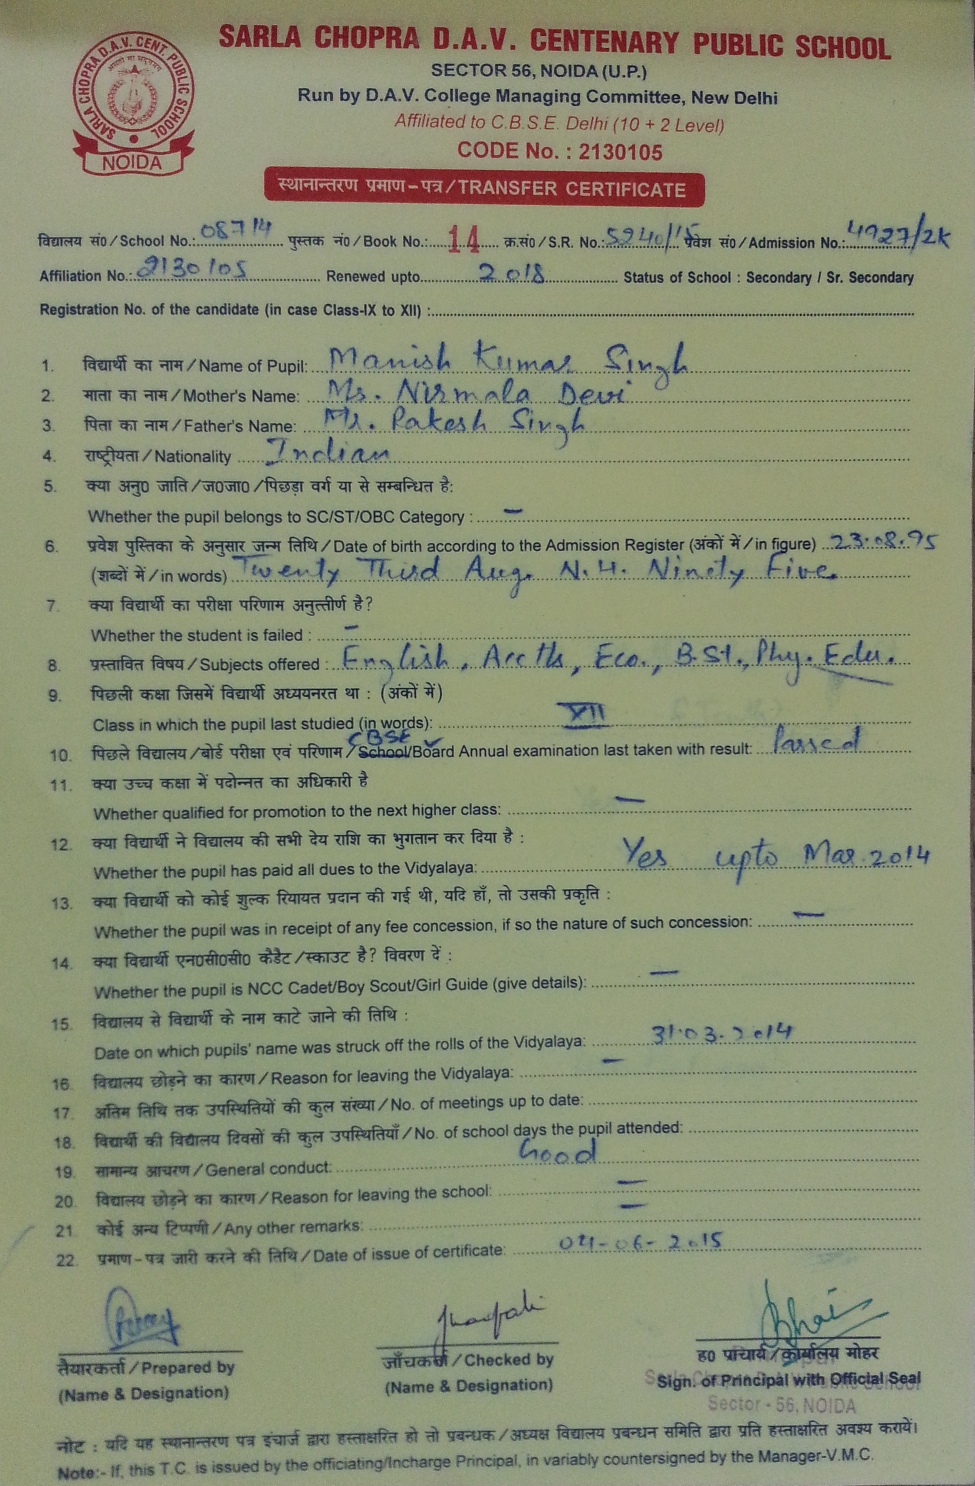 SARLA CHOPRA D.A.V. CENTENARY PUBLIC SCHOOL
SECTOR 56, NOIDA (U.P.)
Run by D.A.V. College Managing Committee, New Delhi
Affiliated to C.B.S.E. Delhi (10 + 2 Level)
CODE No. : 2130105
SARLA CHOPRA D.A.V. CENT. PUBLIC SCHOOL
NOIDA
स्थानान्तरण प्रमाण-पत्र/TRANSFER CERTIFICATE
विद्यालय सं०/School No.: 08714 पुस्तक नं०/Book No.: 14 क्र.सं०/S.R. No.: 5240/15 प्रवेश सं०/Admission No.: 4927/2K
Affiliation No.: 2130105 Renewed upto 2018 Status of School : Secondary / Sr. Secondary
Registration No. of the candidate (in case Class-IX to XII) :
1. विद्यार्थी का नाम/Name of Pupil: Manish Kumar Singh
2. माता का नाम/Mother's Name: Ms. Nirmala Devi
3. पिता का नाम/Father's Name: Mr. Rakesh Singh
4. राष्ट्रीयता/Nationality Indian
5. क्या अनु० जाति/ज०जा०/पिछड़ा वर्ग या से सम्बन्धित है:
Whether the pupil belongs to SC/ST/OBC Category : –
6. प्रवेश पुस्तिका के अनुसार जन्म तिथि/Date of birth according to the Admission Register (अंकों में/in figure) 23.08.95
(शब्दों में/in words) Twenty Third Aug. N.H. Ninety Five
7. क्या विद्यार्थी का परीक्षा परिणाम अनुत्तीर्ण है?
Whether the student is failed : –
8. प्रस्तावित विषय/Subjects offered : English, Accts, Eco., B.St., Phy. Edu.
9. पिछली कक्षा जिसमें विद्यार्थी अध्ययनरत था : (अंकों में)
Class in which the pupil last studied (in words): XII
CBSE
10. पिछले विद्यालय/बोर्ड परीक्षा एवं परिणाम/School/Board Annual examination last taken with result: Passed
11. क्या उच्च कक्षा में पदोन्नत का अधिकारी है
Whether qualified for promotion to the next higher class: –
12. क्या विद्यार्थी ने विद्यालय की सभी देय राशि का भुगतान कर दिया है :
Whether the pupil has paid all dues to the Vidyalaya: Yes upto Mar 2014
13. क्या विद्यार्थी को कोई शुल्क रियायत प्रदान की गई थी, यदि हाँ, तो उसकी प्रकृति :
Whether the pupil was in receipt of any fee concession, if so the nature of such concession: –
14. क्या विद्यार्थी एन०सी०सी० कैडैट/स्काउट है? विवरण दें :
Whether the pupil is NCC Cadet/Boy Scout/Girl Guide (give details): –
15. विद्यालय से विद्यार्थी के नाम काटे जाने की तिथि :
Date on which pupils' name was struck off the rolls of the Vidyalaya: 31.03.2014
16. विद्यालय छोड़ने का कारण/Reason for leaving the Vidyalaya: –
17. अंतिम तिथि तक उपस्थितियों की कुल संख्या/No. of meetings up to date:
18. विद्यार्थी की विद्यालय दिवसों की कुल उपस्थितियाँ/No. of school days the pupil attended:
19. सामान्य आचरण/General conduct: Good
20. विद्यालय छोड़ने का कारण/Reason for leaving the school: –
21. कोई अन्य टिप्पणी/Any other remarks: –
22. प्रमाण-पत्र जारी करने की तिथि/Date of issue of certificate: 04-06-2015
तैयारकर्ता/Prepared by
(Name & Designation)
जाँचकर्ता/Checked by
(Name & Designation)
ह० प्राचार्य/कार्यालय मोहर
Sign. of Principal with Official Seal
Sector - 56, NOIDA
नोट : यदि यह स्थानान्तरण पत्र इंचार्ज द्वारा हस्ताक्षरित हो तो प्रबन्धक/अध्यक्ष विद्यालय प्रबन्धन समिति द्वारा प्रति हस्ताक्षरित अवश्य करायें।
Note:- If, this T.C. is issued by the officiating/Incharge Principal, in variably countersigned by the Manager-V.M.C.